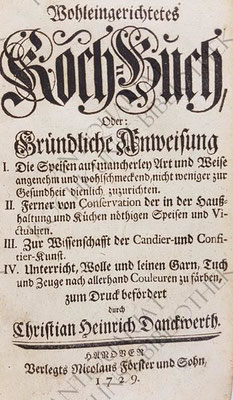 Wohleingerichtetes
Koch-Buch,
Oder:
Gründliche Anweisung
I. Die Speisen auf mancherley Art und Weise
angenehm und wohlschmeckend, nicht weniger zur
Gesundheit dienlich zuzurichten.
II. Ferner von Conservation der in der Hauß-
haltung und Küchen nöthigen Speisen und Vi-
ctualien.
III. Zur Wissenschafft der Candier- und Confi-
tier-Kunst.
IV. Unterricht, Wolle und leinen Garn, Tuch
und Zeuge nach allerhand Couleuren zu färben,
zum Druck befördert
durch
Christian Heinrich Danckwerth.
HANOVER
Verlegts Nicolaus Förster und Sohn,
1729.